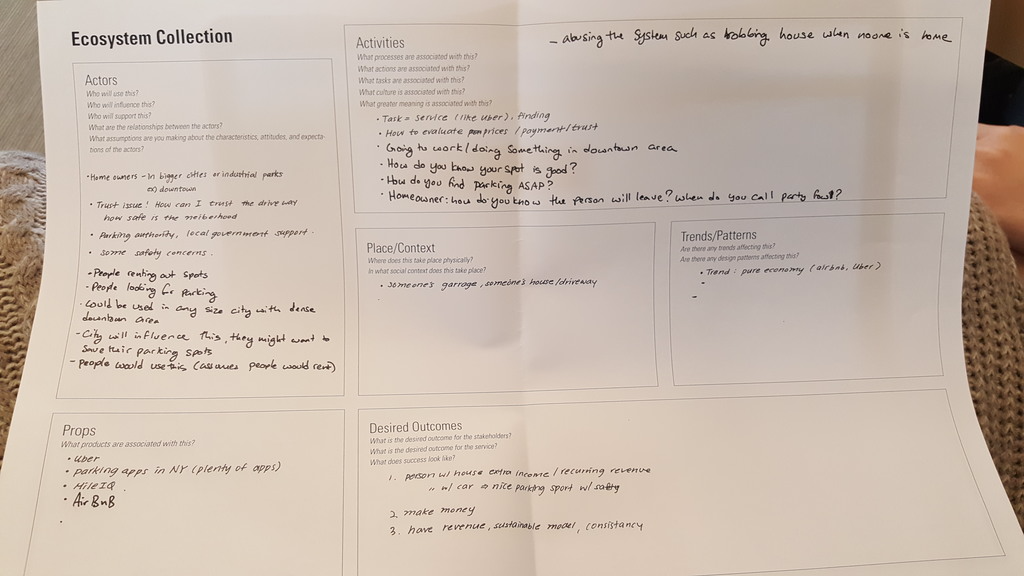 Ecosystem Collection
Actors
Who will use this?
Who will influence this?
Who will support this?
What are the relationships between the actors?
What assumptions are you making about the characteristics, attitudes, and expecta-
tions of the actors?
• Home owners - In bigger cities or industrial parks
downtown
• Trust issue! How can I trust the drive way
how safe is the neiberhood
• Parking authority, local government support.
• Some safety concerns.
- People renting out spots
- People looking for parking
- Could be used in any size city with dense
downtown area
- City will influence this, they might want to
save their parking spots
- People would use this (assumes people would rent)
Activities
What processes are associated with this?
What actions are associated with this?
What tasks are associated with this?
What culture is associated with this?
What greater meaning is associated with this?
- abusing the system such as robbing house when noone is home
• Task = service (like uber), finding
• How to evaluate prices / payment / trust
• Going to work / doing something in downtown area
• How do you know your spot is good?
• How do you find parking ASAP?
• Homeowner: how do you know the person will leave? When do you call party foul?
Place/Context
Where does this take place physically?
In what social context does this take place?
• Someone's garrage, someone's house/driveway
Trends/Patterns
Are there any trends affecting this?
Are there any design patterns affecting this?
• Trend: pure economy (airbnb, Uber)
-
-
Props
What products are associated with this?
• Uber
• parking apps in NY (plenty of apps)
• MileIQ
• AirBnB
•
Desired Outcomes
What is the desired outcome for the stakeholders?
What is the desired outcome for the service?
What does success look like?
1. person w/ house extra income / recurring revenue
" w/ car → nice parking sport w/ safety
2. make money
3. have revenue, sustainable model, consistancy